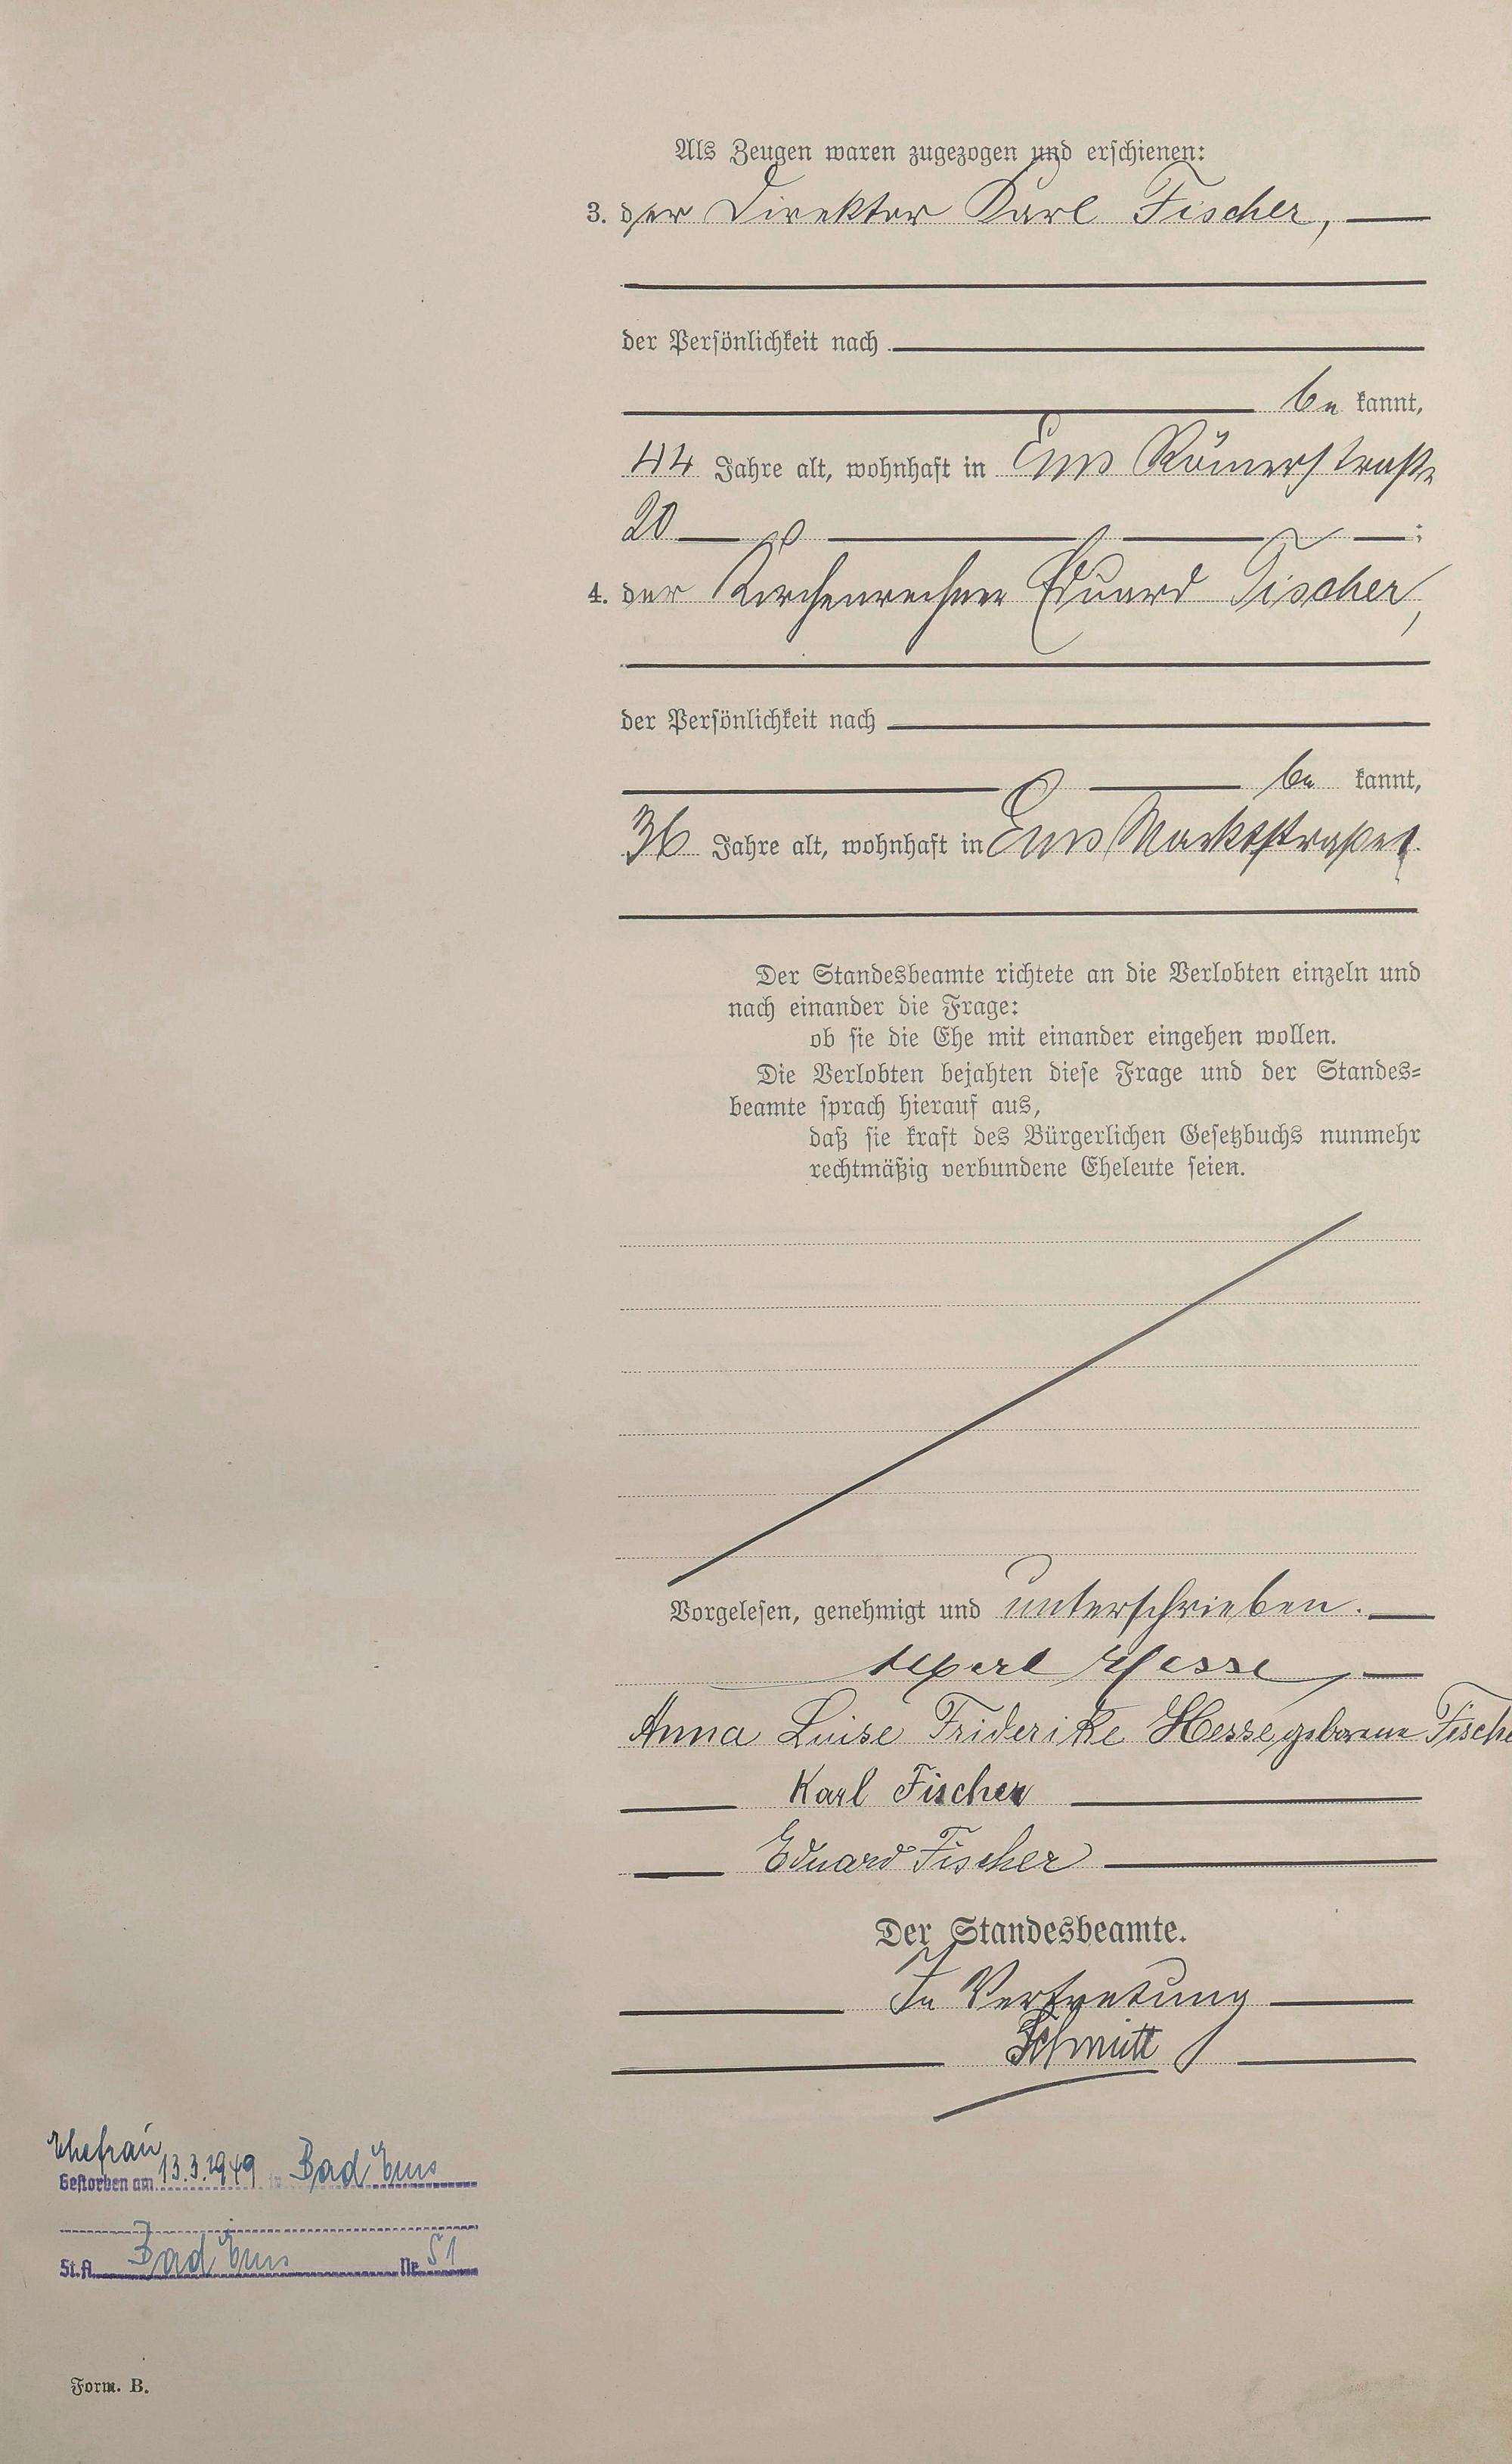 Als Zeugen waren zugezogen und erschienen:
3. der Direktor Karl Fischer,
der Persönlichkeit nach
be kannt,
44 Jahre alt, wohnhaft in Ems Römerstraße
20 ;
4. der Kirchenrechner Eduard Fischer,
der Persönlichkeit nach
be kannt,
36 Jahre alt, wohnhaft in Ems Marktstraße
Der Standesbeamte richtete an die Verlobten einzeln und
nach einander die Frage:
ob sie die Ehe mit einander eingehen wollen.
Die Verlobten bejahten diese Frage und der Standes=
beamte sprach hierauf aus,
daß sie kraft des Bürgerlichen Gesetzbuchs nunmehr
rechtmäßig verbundene Eheleute seien.
Vorgelesen, genehmigt und unterschrieben.
Hesse
Anna Luise Friderike Hesse, geborene Fische
Karl Fischer
Eduard Fischer
Der Standesbeamte.
In Vertretung
Schmitt
Ehefrau
Gestorben am 13.3.1949 in Bad Ems
St.A. Bad Ems Nr. 51
Form. B.